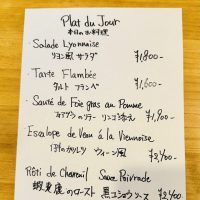 Plat du Jour
本日のお料理
・Salade Lyonnaise
リヨン風 サラダ
¥1,800-
・Tarte Flambée
タルト フランベ
¥1,600-
・Sauté de Foie gras au Pomme
フォアグラのソテー リンゴ添え
¥1,900-
・Escalope de Veau à la Viennoise
仔牛のカツレツ ウィーン風
¥2,400-
Rôti de Chevreuil Sauce Poivrade
蝦夷鹿のロースト 黒コショウソース
¥2,400-